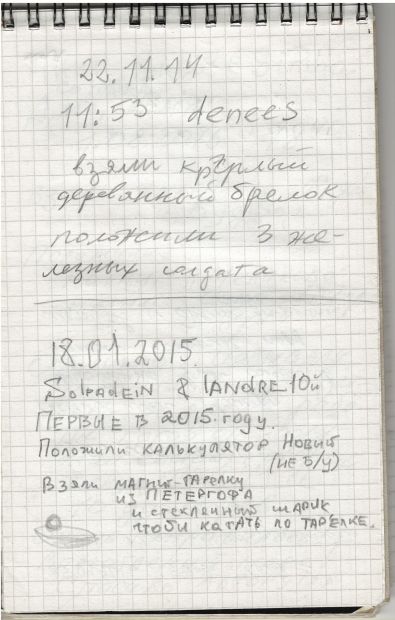 22.11.14
11:53 denees
взяли круглый
деревянный брелок
положили 3 же-
лезных солдата
18.01.2015.
Solpadein & IANDRE10й
Первые в 2015 году.
Положили калькулятор новый
(не б/у)
Взяли магнит-тарелку
из Петергофа
и стеклянный шарик
чтоби катать по тарелке.